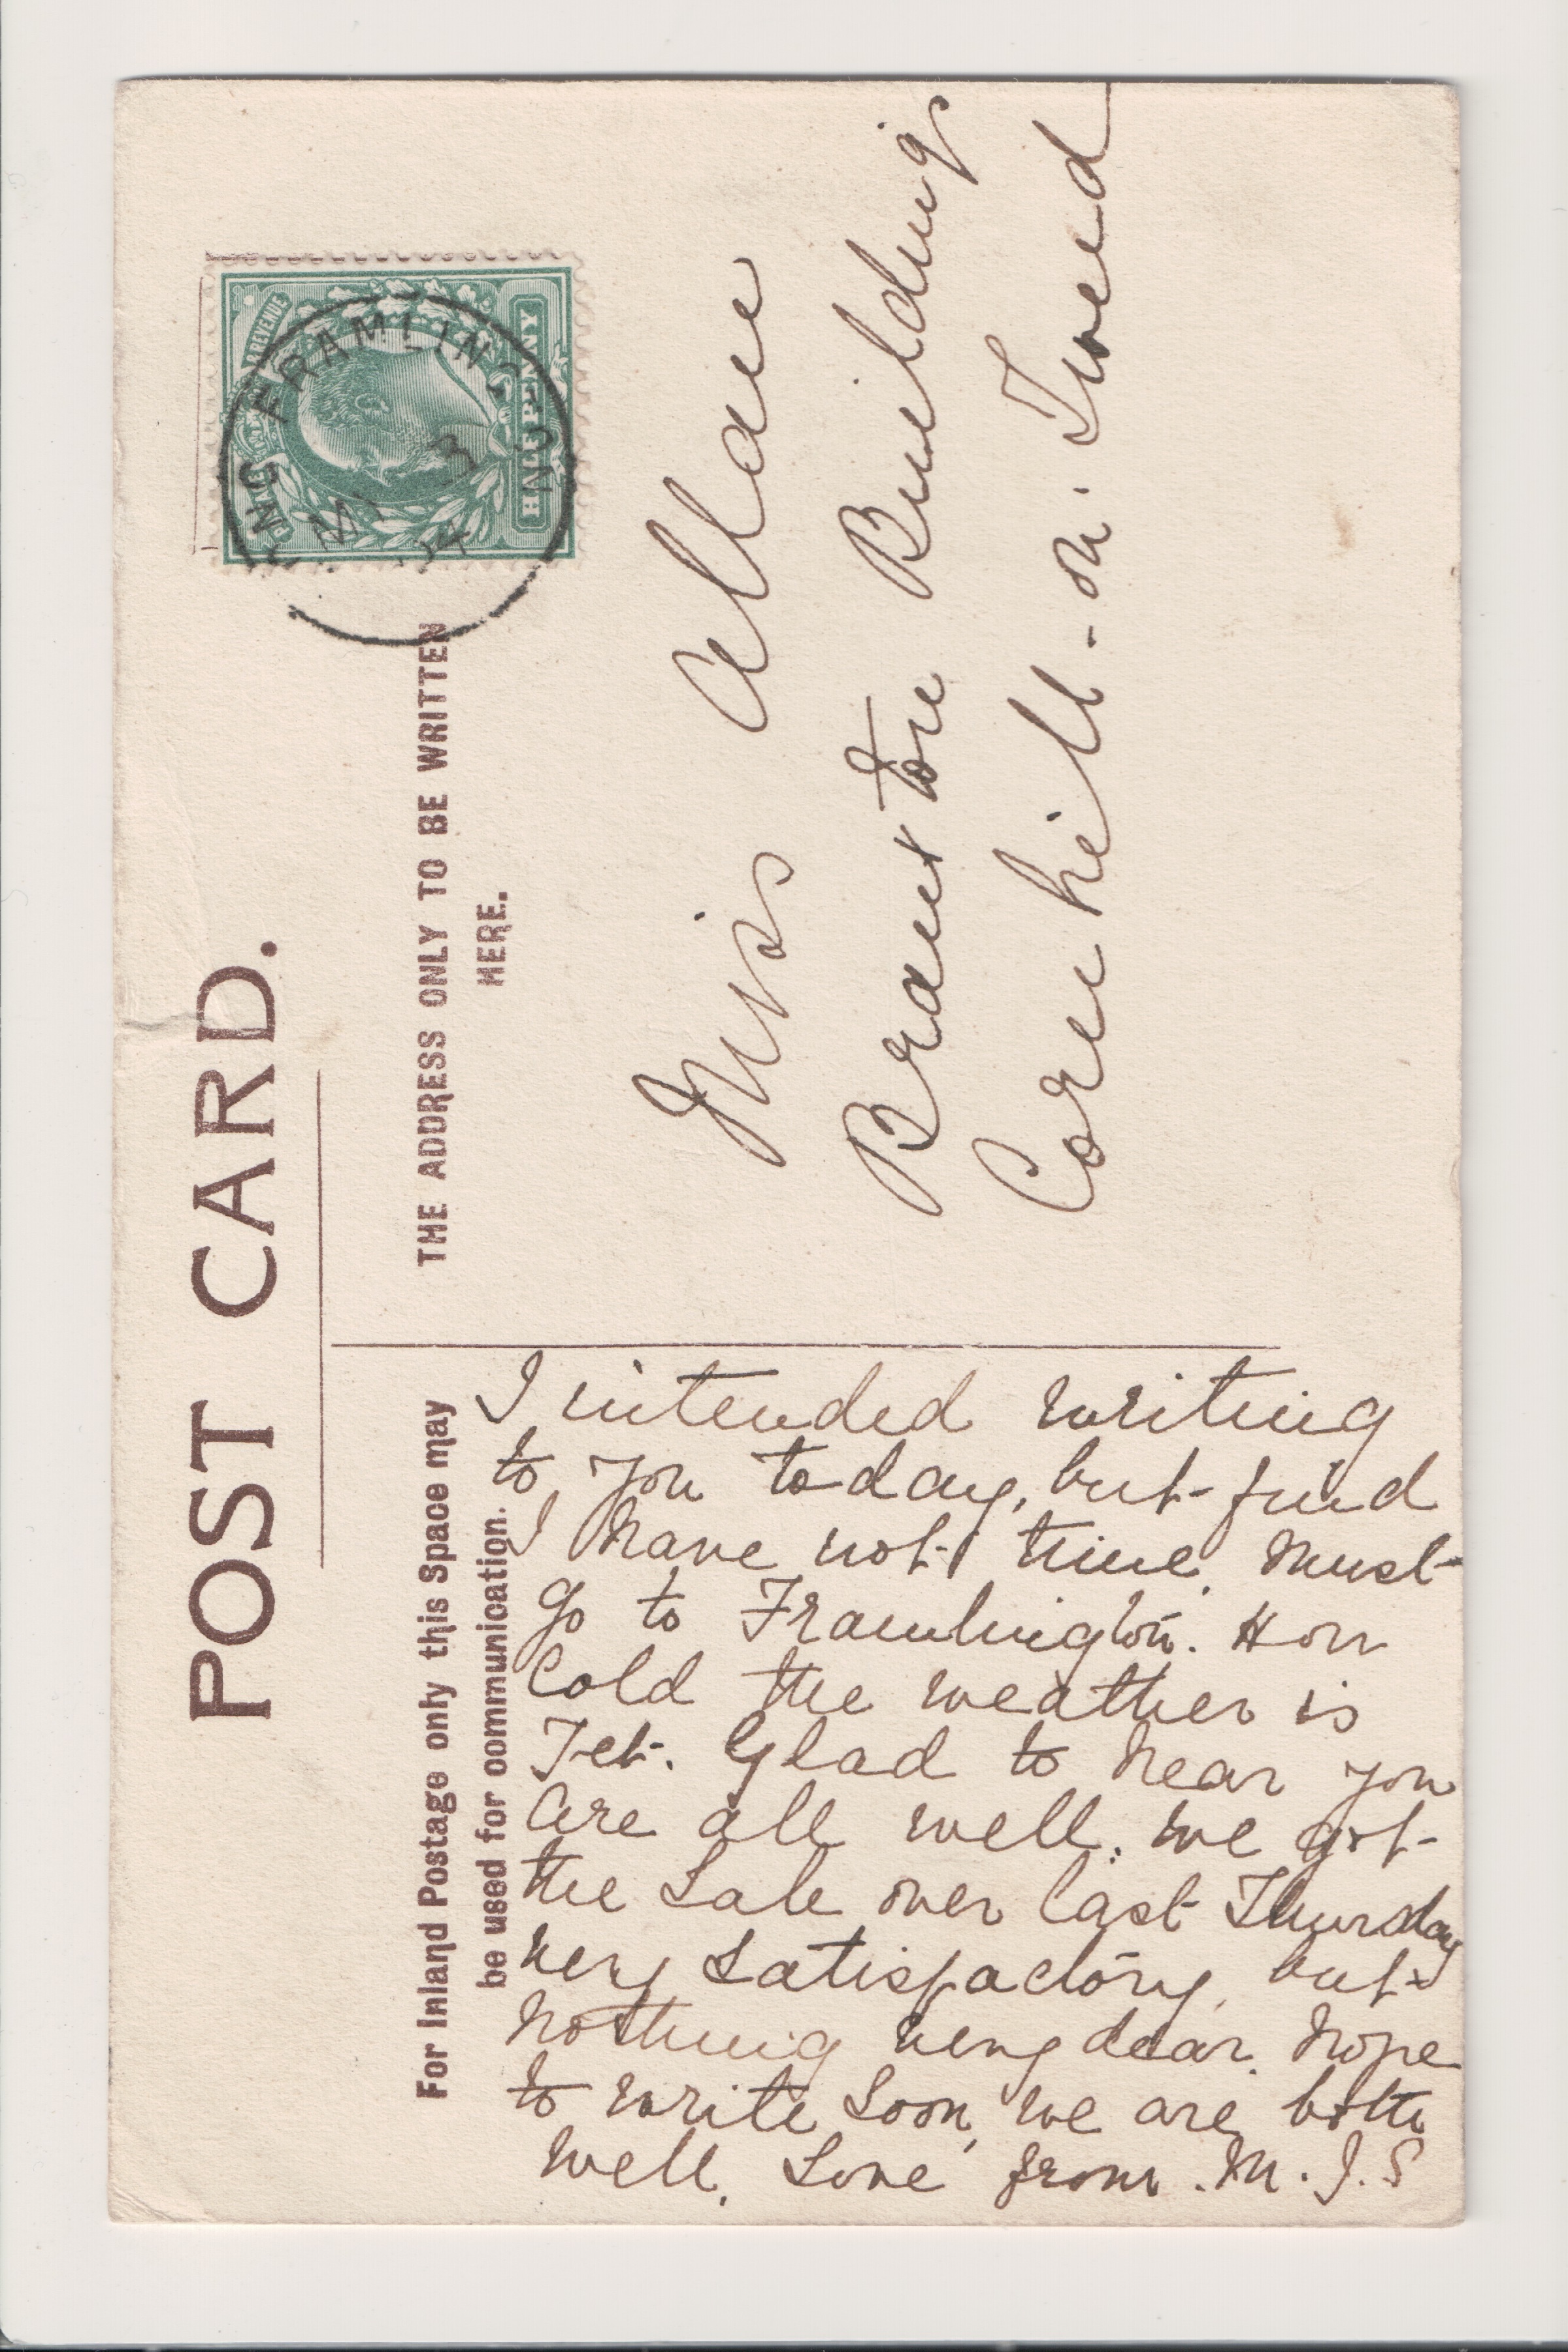 POST CARD.
For Inland Postage only this Space may
be used for communication.
THE ADDRESS ONLY TO BE WRITTEN
HERE.
POSTAGE & REVENUE
HALFPENNY
LONG FRAMLINGTON
MY 3
04
I intended writing
to you today, but find
I have not time. Must
go to Framlington. How
Cold the weather is
Yet. Glad to hear you
are all well. We got
the Sale over last Thursday
very Satisfactory, but
Nothing very dear. hope
to write Soon, we are both
well. Love from M.J.S
Miss Allan
Branxton Buildings
Cornhill-on-Tweed